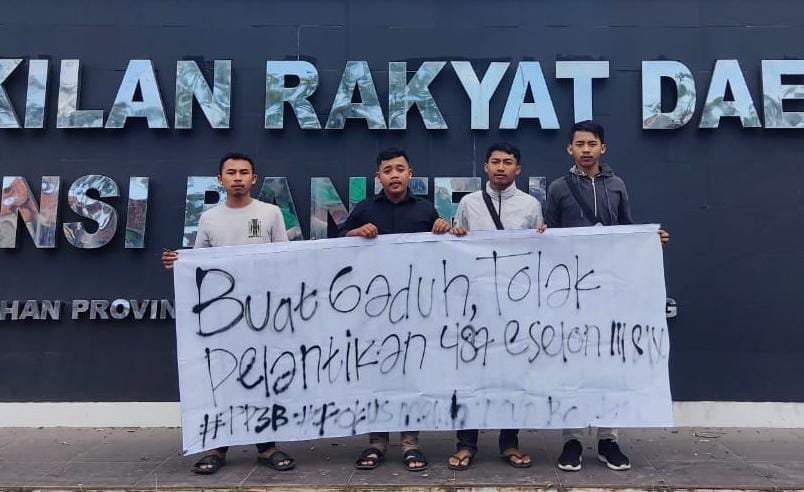 KILAN RAKYAT DAE
NSI BANTEN
AHAN PROVIN
G
Buat Gaduh, Tolak
Pelantikan 487 eselon III & IV
#PP3B #Fokus